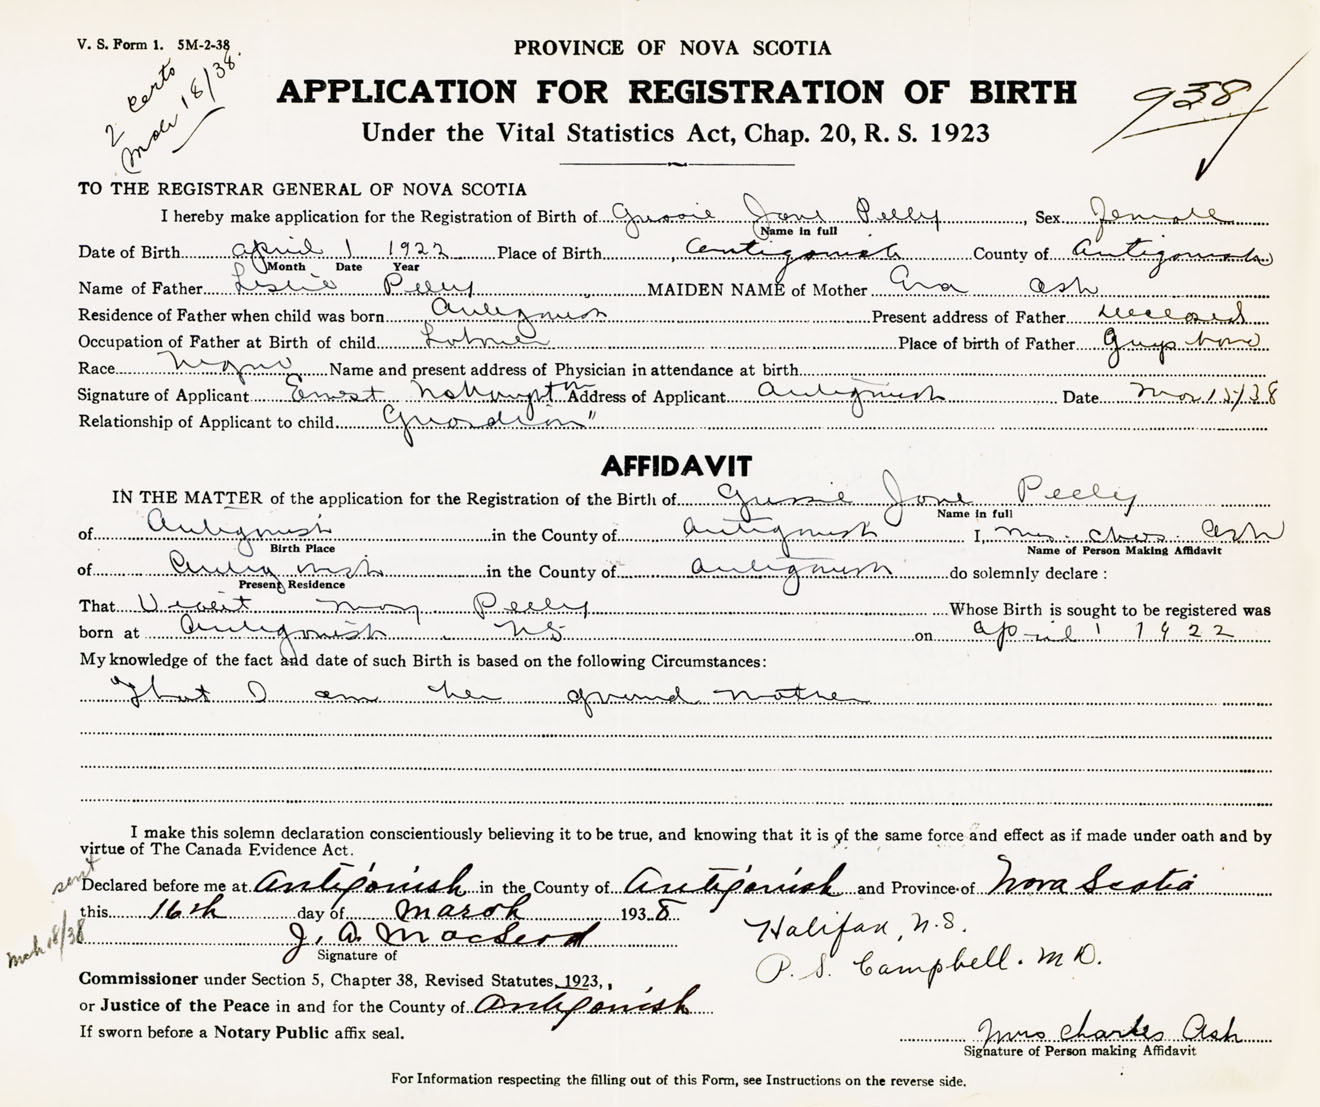 V. S. Form 1. 5M-2-38
2 certs
Mar 18/38.
PROVINCE OF NOVA SCOTIA
APPLICATION FOR REGISTRATION OF BIRTH
Under the Vital Statistics Act, Chap. 20, R. S. 1923
938
TO THE REGISTRAR GENERAL OF NOVA SCOTIA
I hereby make application for the Registration of Birth of Gussie Jane Peely, Sex Female
Name in full
Date of Birth April 1 1922 Place of Birth Antigonish County of Antigonish
Month Date Year
Name of Father Leslie Peely MAIDEN NAME of Mother Ash
Residence of Father when child was born Antigonish Present address of Father Deceased
Occupation of Father at Birth of child Place of birth of Father Guysboro
Race Negro Name and present address of Physician in attendance at birth
Signature of Applicant Ernest Address of Applicant Antigonish Date Mar 15/38
Relationship of Applicant to child Guardian "
AFFIDAVIT
IN THE MATTER of the application for the Registration of the Birth of Gussie Jane Peely
Name in full
of Antigonish in the County of Antigonish I, Mrs. Chas. Ash
Birth Place Name of Person Making Affidavit
of Antigonish in the County of Antigonish do solemnly declare :
Present Residence
That May Peely Whose Birth is sought to be registered was
born at Antigonish NS on April 1 1922
My knowledge of the fact and date of such Birth is based on the following Circumstances:
"That I am her grand mother
I make this solemn declaration conscientiously believing it to be true, and knowing that it is of the same force and effect as if made under oath and by
virtue of The Canada Evidence Act.
sent
Declared before me at Antigonish in the County of Antigonish and Province of Nova Scotia
this 16th day of March 1938
Mch 18/38
J. A. MacLeod
Signature of
Halifax, N.S.
P. S. Campbell. M.D.
Commissioner under Section 5, Chapter 38, Revised Statutes, 1923,,
or Justice of the Peace in and for the County of Antigonish
If sworn before a Notary Public affix seal.
Mrs Charles Ash
Signature of Person making Affidavit
For Information respecting the filling out of this Form, see Instructions on the reverse side.